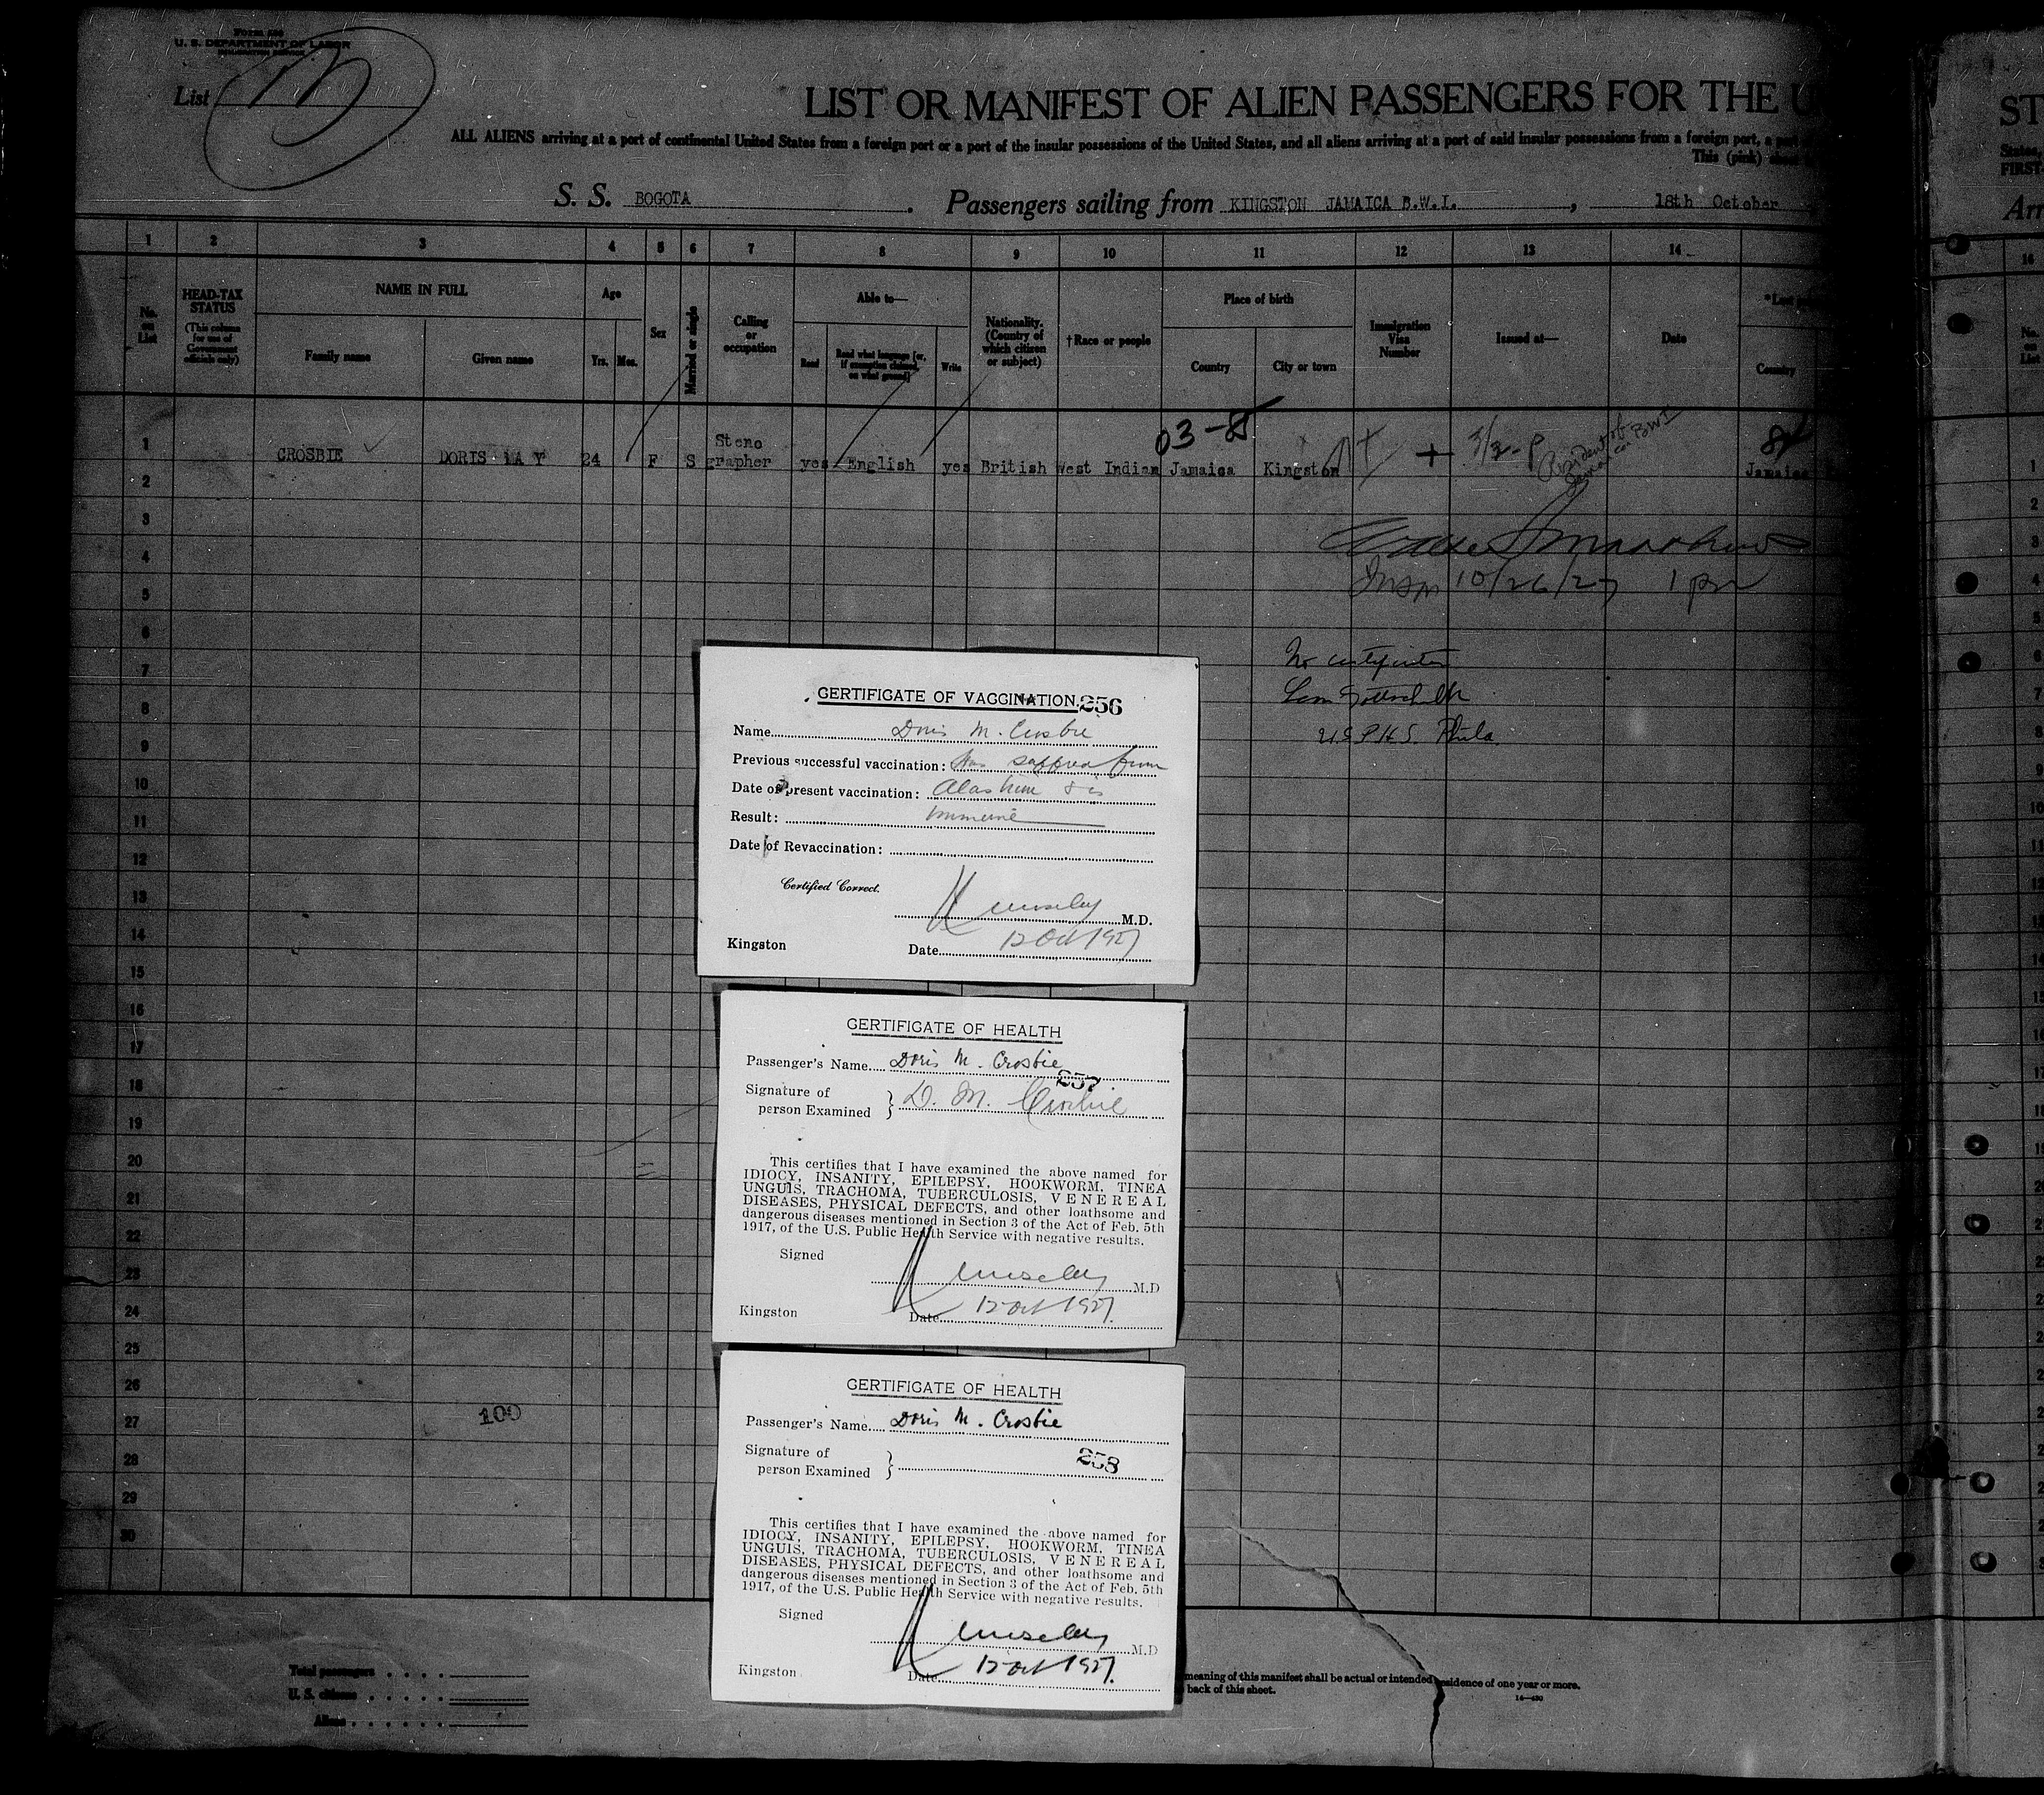 Form 500
U. S. DEPARTMENT OF LABOR
IMMIGRATION SERVICE
List
LIST OR MANIFEST OF ALIEN PASSENGERS FOR THE U
ALL ALIENS arriving at a port of continental United States from a foreign port or a port of the insular possessions of the United States, and all aliens arriving at a port of said insular possessions from a foreign port, a
This (pink) sheet
S. S. BOGOTA. Passengers sailing from KINGSTON JAMAICA B.W.I., 18th October
ST
States,
FIRST-
Arr
1 2 3 4 5 6 7 8 9 10 11 12 13 14 16
No. on List
HEAD-TAX STATUS
(This column for use of Government officials only)
NAME IN FULL
Family name
Given name
Age
Yrs. Mos.
Sex
Married or single
Calling or occupation
Able to—
Read
Read what language [or, if exemption claimed, on what ground]
Write
Nationality. (Country of which citizen or subject)
†Race or people
Place of birth
Country
City or town
Immigration Visa Number
Issued at—
Date
Country
No. on List
03-8
1 CROSBIE DORIS MAY 24 F S Steno grapher yes English yes British West Indian Jamaica Kingston Jamaica
Resident of
Jamaica BWI
10/26/27 1 pm
No certificates
U.S.P.H.S. Phila.
2
3
4
5
6
7
8
9
10
11
12
13
14
15
16
17
18
19
20
21
22
23
24
25
26
27
28
29
30
100
CERTIFICATE OF VACCINATION. 256
Name Doris M. Crosbie
Previous successful vaccination: Has suffered from
Date of present vaccination: Alastrim & is
Result: immune
Date of Revaccination:
Certified Correct.
M.D.
Kingston Date 12 Oct 1927
CERTIFICATE OF HEALTH
Passenger's Name Doris M. Crosbie
257
Signature of
person Examined } D. M. Crosbie
This certifies that I have examined the above named for
IDIOCY, INSANITY, EPILEPSY, HOOKWORM, TINEA
UNGUIS, TRACHOMA, TUBERCULOSIS, VENEREAL
DISEASES, PHYSICAL DEFECTS, and other loathsome and
dangerous diseases mentioned in Section 3 of the Act of Feb. 5th
1917, of the U.S. Public Health Service with negative results.
Signed
M.D
Kingston Date 12 Oct 1927.
CERTIFICATE OF HEALTH
Passenger's Name Doris M. Crosbie
Signature of
person Examined } 258
This certifies that I have examined the above named for
IDIOCY, INSANITY, EPILEPSY, HOOKWORM, TINEA
UNGUIS, TRACHOMA, TUBERCULOSIS, VENEREAL
DISEASES, PHYSICAL DEFECTS, and other loathsome and
dangerous diseases mentioned in Section 3 of the Act of Feb. 5th
1917, of the U.S. Public Health Service with negative results.
Signed
M.D
Kingston Date 12 Oct 1927.
Total passengers
U. S. citizens
Aliens
meaning of this manifest shall be actual or intended residence of one year or more.
back of this sheet.
14—430